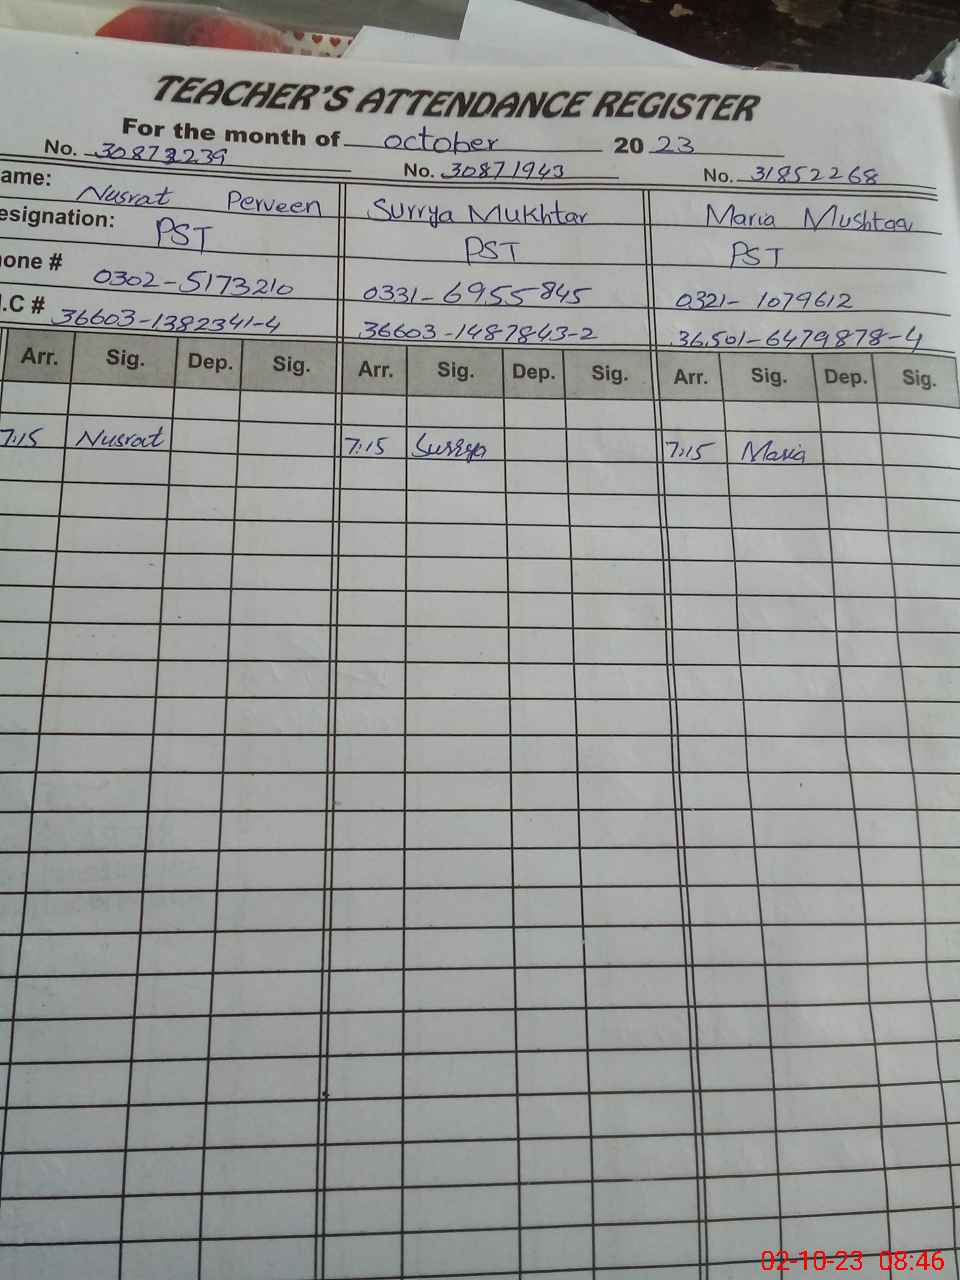 TEACHER'S ATTENDANCE REGISTER
For the month of October 2023
No. 30873239 No. 30871943 No. 31852268
ame: Nusrat Perveen Surrya Mukhtar Maria Mushtaq
esignation: PST PST PST
one # 0302-5173210 0331-6955845 0321-1079612
.C # 36603-1382341-4 36603-1487843-2 36501-6479878-4
Arr. Sig. Dep. Sig. Arr. Sig. Dep. Sig. Arr. Sig. Dep. Sig.
7:15 Nusrat 7:15 Surrya 7:15 Maria
02-10-23 08:46